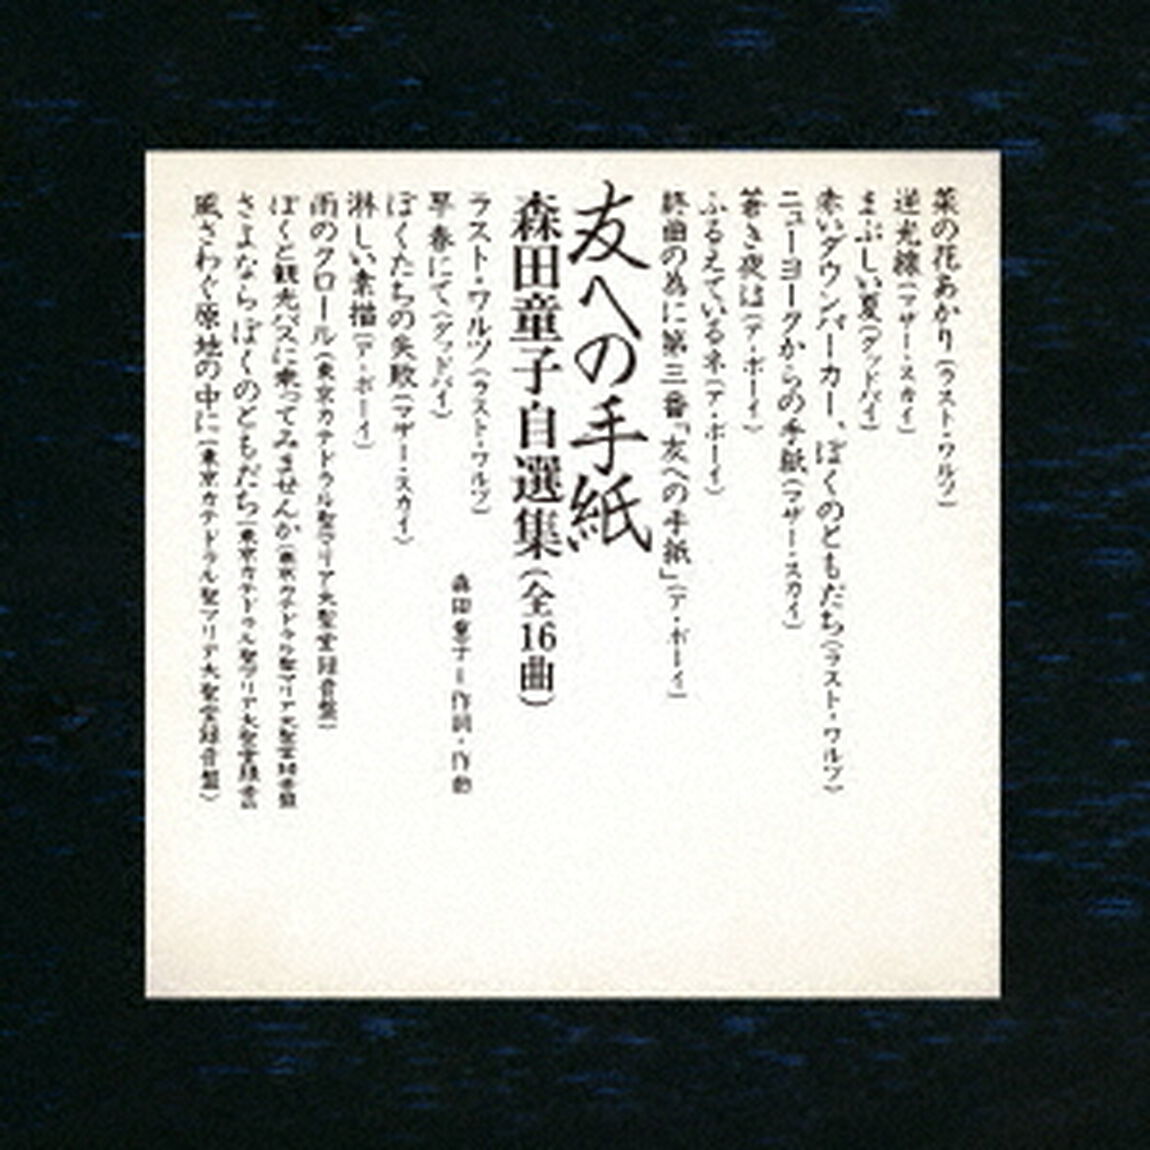 菜の花あかり(ラスト・ワルツ)
逆光線(マザー・スカイ)
まぶしい夏(グッドバイ)
赤いダウンパーカー、ぼくのともだち(ラスト・ワルツ)
ニューヨークからの手紙(マザー・スカイ)
蒼き夜は(ア・ボーイ)
ふるえているネ(ア・ボーイ)
終曲の為に第三番「友への手紙」(ア・ボーイ)
友への手紙
森田童子自選集(全16曲)
ラスト・ワルツ(ラスト・ワルツ)
森田童子=作詞・作曲
早春にて(グッドバイ)
ぼくたちの失敗(マザー・スカイ)
淋しい素描(ア・ボーイ)
雨のクロール(東京カテドラル聖マリア大聖堂録音盤)
ぼくと観光バスに乗ってみませんか(東京カテドラル聖マリア大聖堂録音盤
さよならぼくのともだち(東京カテドラル聖マリア大聖堂録音
風さわぐ原地の中に(東京カテドラル聖マリア大聖堂録音盤)